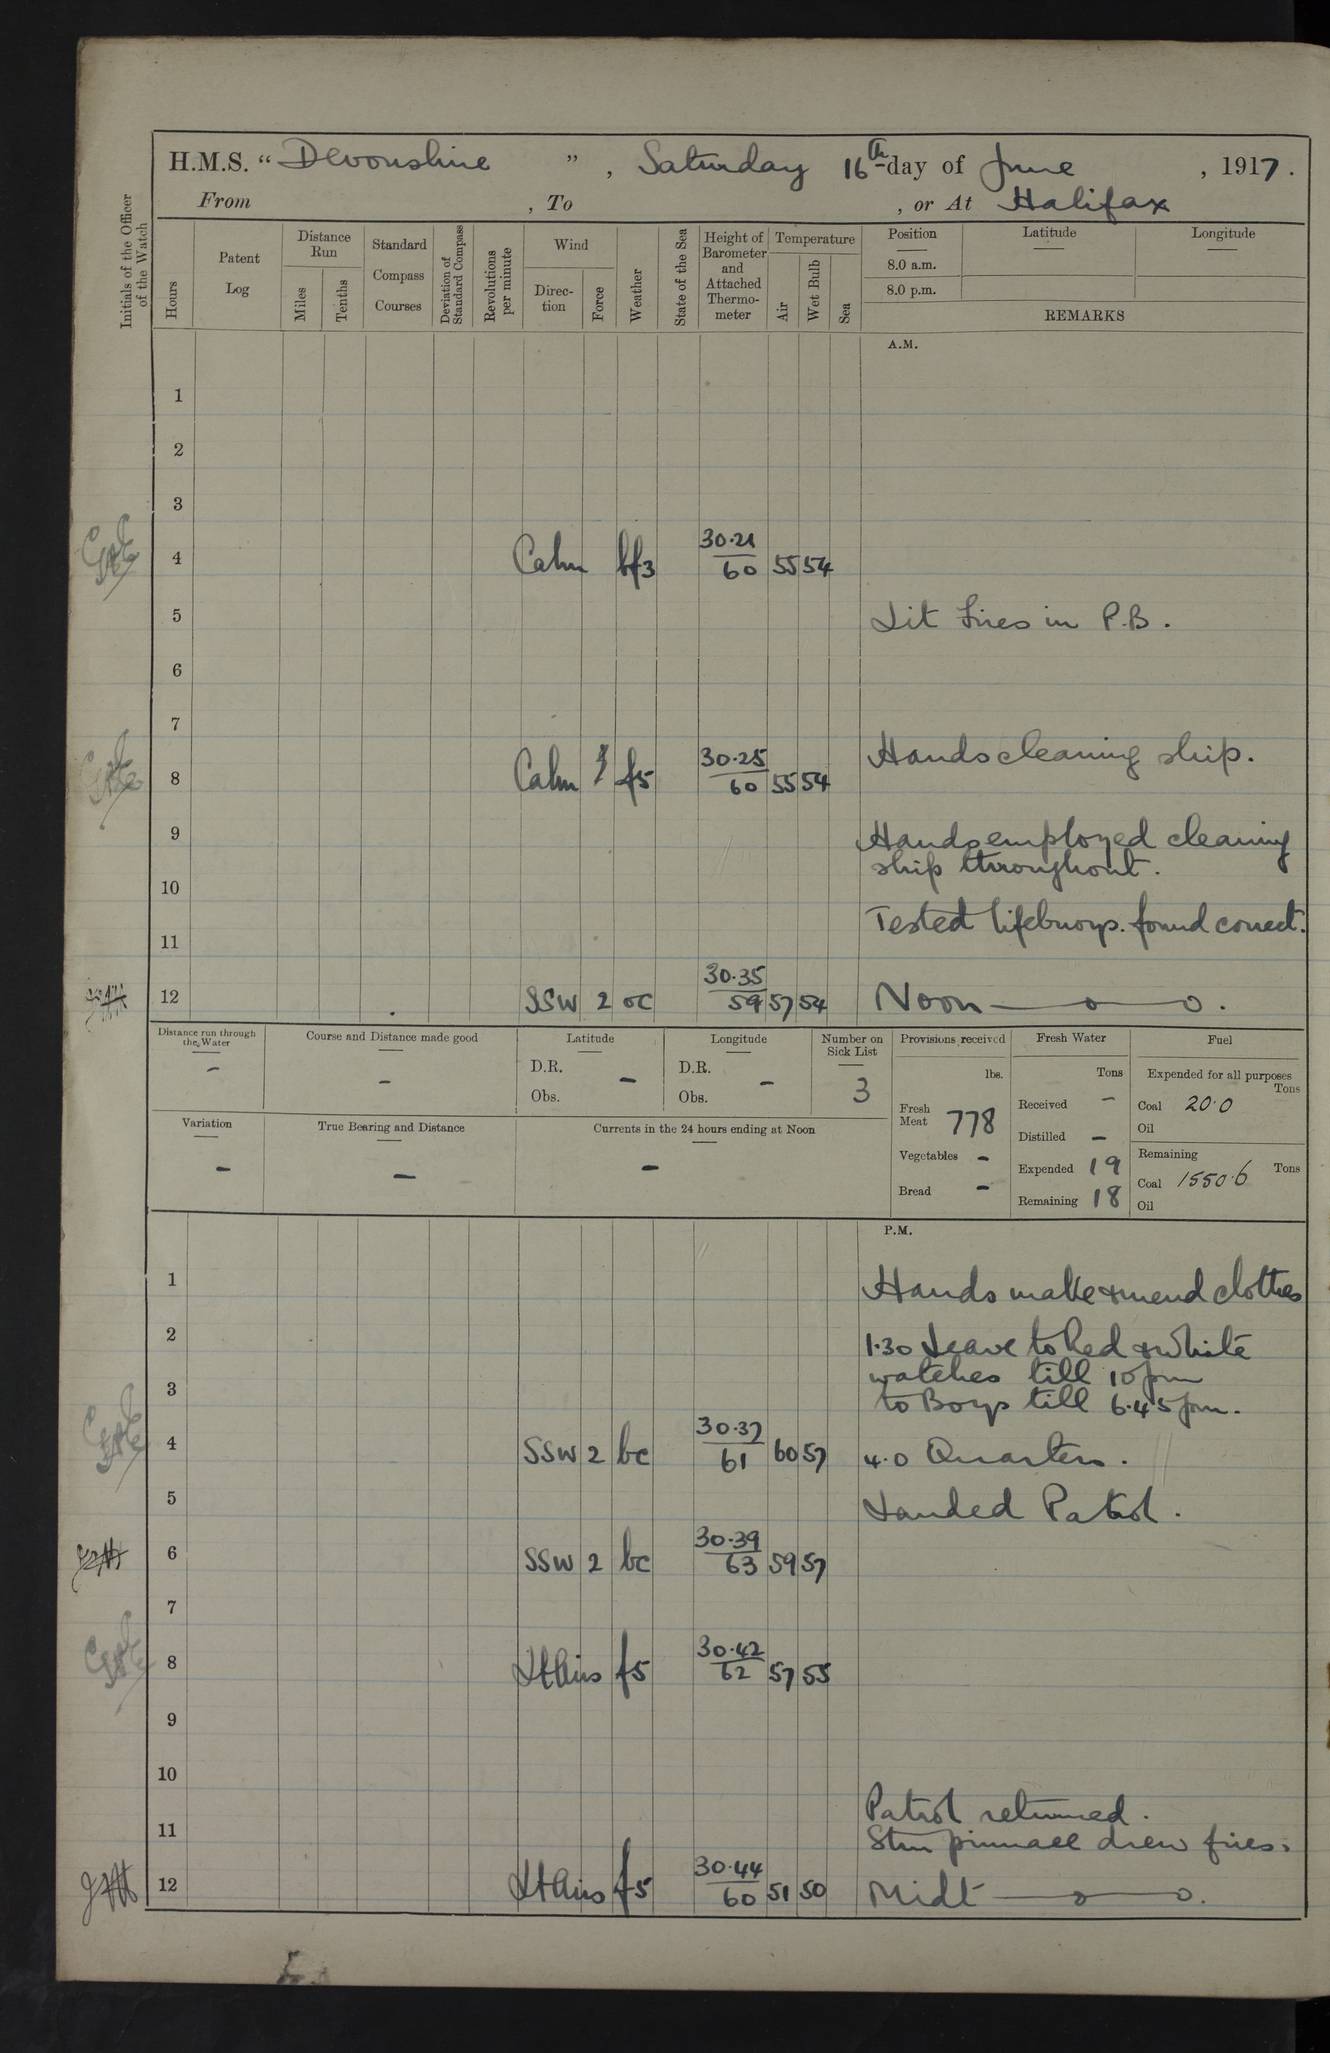 H.M.S. “Devonshire”, Saturday 16th day of June, 1917.
From , To , or At Halifax
Initials of the Officer of the Watch
Hours
Patent Log
Distance Run
Miles
Tenths
Standard Compass Courses
Deviation of Standard Compass
Revolutions per minute
Wind
Direction
Force
Weather
State of the Sea
Height of Barometer and Attached Thermometer
Temperature
Air
Wet Bulb
Sea
Position
8.0 a.m.
8.0 p.m.
Latitude
Longitude
REMARKS
A.M.
1
2
3
4 Calm bf3 30.21/60 55 54
5 Lit fires in P.B.
6
7
Hands cleaning ship.
8 Calm f5 30.25/60 55 54
9 Hands employed cleaning
ship throughout.
10
Tested lifebuoys. found correct.
11
12 SSW 2 oc 30.35/59 57 54 Noon —o—o.
Distance run through the Water
-
Course and Distance made good
-
Latitude
D.R.
Obs.
-
Longitude
D.R.
Obs.
-
Number on Sick List
3
Provisions received
lbs.
Fresh Meat 778
Vegetables -
Bread -
Fresh Water
Tons
Received -
Distilled -
Expended 19
Remaining 18
Fuel
Expended for all purposes
Tons
Coal 20.0
Oil
Remaining
Tons
Coal 1550.6
Oil
Variation
-
True Bearing and Distance
-
Currents in the 24 hours ending at Noon
-
P.M.
1 Hands make & mend clothes
2 1.30 Leave to Red & White
watches till 10 pm
3 to Boys till 6.45 pm.
4 SSW 2 bc 30.37/61 60 57 4.0 Quarters.
5 Landed Patrol.
6 SSW 2 bc 30.39/63 59 57
7
8 Lt Airs f5 30.42/62 57 55
9
10
Patrol returned.
11 Stm pinnace drew fires.
12 Lt Airs f5 30.44/60 51 50 Midt —o—o.